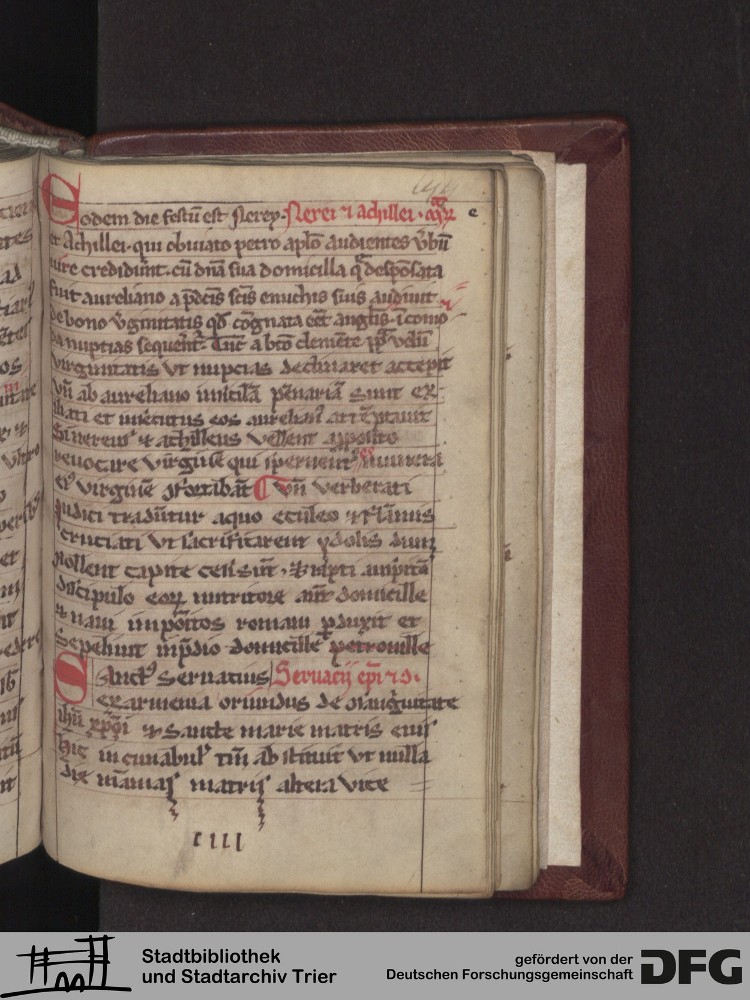 Eodem die festū est Nerey. Nerei ⁊ achillei. m̄rꝝ
et Achillei. qui obuiato petro ap̄lo audientes v̄bū
uite crediderūt. cū dn̄a sua domicilla q̄ despōsata
fuit aureliano a p̄dc̄is sc̄is enuchis suis audiuit
de bono v̄ginitatis qd̓ cōgnata eēt angl̓is. īcomo
da nuptias sequent̓. Tūc a bt̄o clemēte ꝓpt̓ velū
virginitatis ut nupcias declinaret accepit
Vn̄ ab aureliano in īsulā sunt ex
iliati et insecutus eos aurelian᷒ attēptauit
Si nereus et achilleus vellent
reuocare virginē qui spernent᷒ munera
ei᷒ virginē ꝯfortabāt Vn̄ verberati
iudici tradūtur a quo eculeo ⁊ flāmis
cruciati ut sacrificarent ydolis dum
nollent capite cesi sūt,
discipulo eoꝝ nutritore aūt domicille
romam ꝑduxit et
Sepeliuit in p̄dio domicille petronille
Sanct᷒ Seruatius Seruacij ep̄i ⁊ ɔ.
ex armenia oriundus de ꝯsanguītate
ih̄u xp̄i et Sancte marie matris eius
Hic in cunabul̓ abstinuit ut nulla
die māmas matris altera vice
cIIII
e
Stadtbibliothek
und Stadtarchiv Trier
gefördert von der
Deutschen Forschungsgemeinschaft
DFG